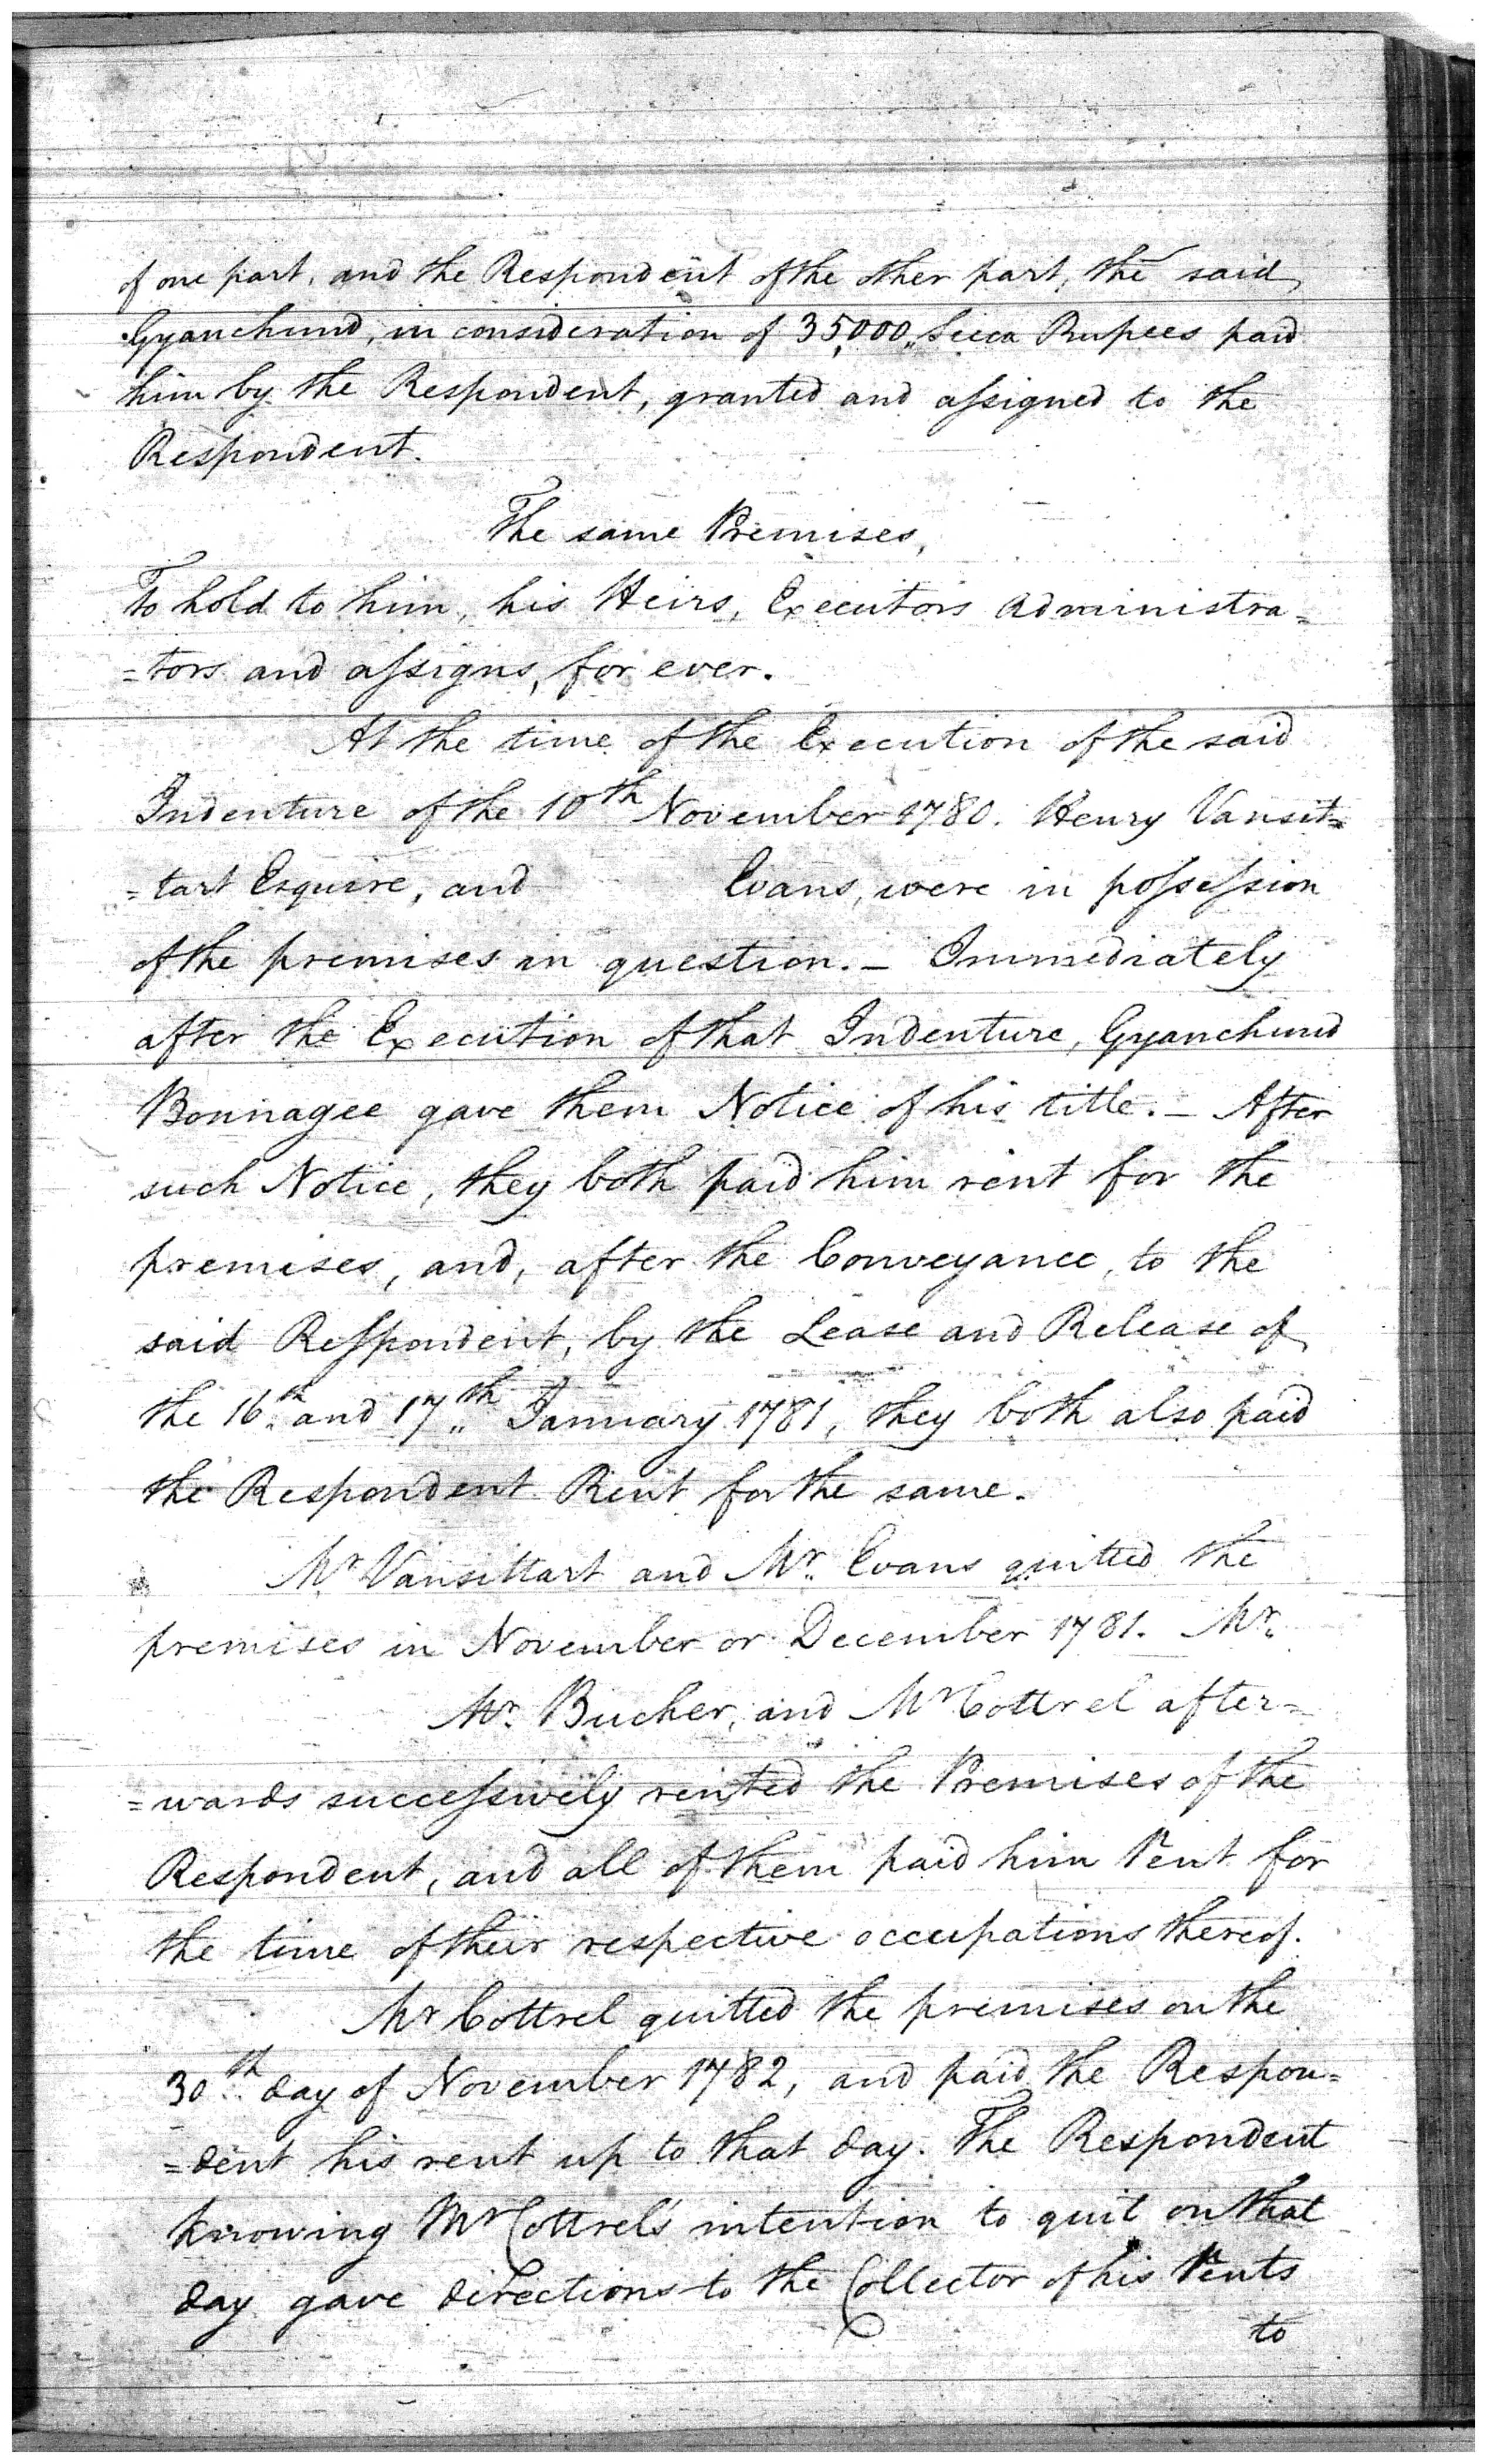 of one part, and the Respondent of the other part, the said
Gyanchund, in consideration of 35,000 Sicca Rupees paid
him by the Respondent, granted and aſsigned to the
Respondent.
The same Premises,
To hold to him, his Heirs, Executors Administra=
=tors and aſsigns, for ever.
At the time of the Execution of the said
Indenture of the 10th November 1780. Henry Vansit=
=tart Esquire, and Evans, were in poſseſsion
of the premises in question. – Immediately
after the Execution of that Indenture, Gyanchund
Bonnagee gave them Notice of his title. – After
such Notice, they both paid him rent for the
premises, and, after the Conveyance, to the
said Reſpondent, by the Lease and Release of
the 16th and 17th January 1781, they both also paid
the Respondent Rent for the same.
Mr Vansittart and Mr. Evans quitted the
premises in November or December 1781. Mr.
Mr. Bucher, and Mr Cottrel after=
=wards succeſsively rented the Premises of the
Respondent, and all of them paid him Rent for
the time of their respective occupations thereof.
Mr Cottrel quitted the premises on the
30th day of November 1782, and paid the Respon=
=dent his rent up to that day. The Respondent
knowing Mr Cottrel's intention to quit on that
day gave directions to the Collector of his Rents
to